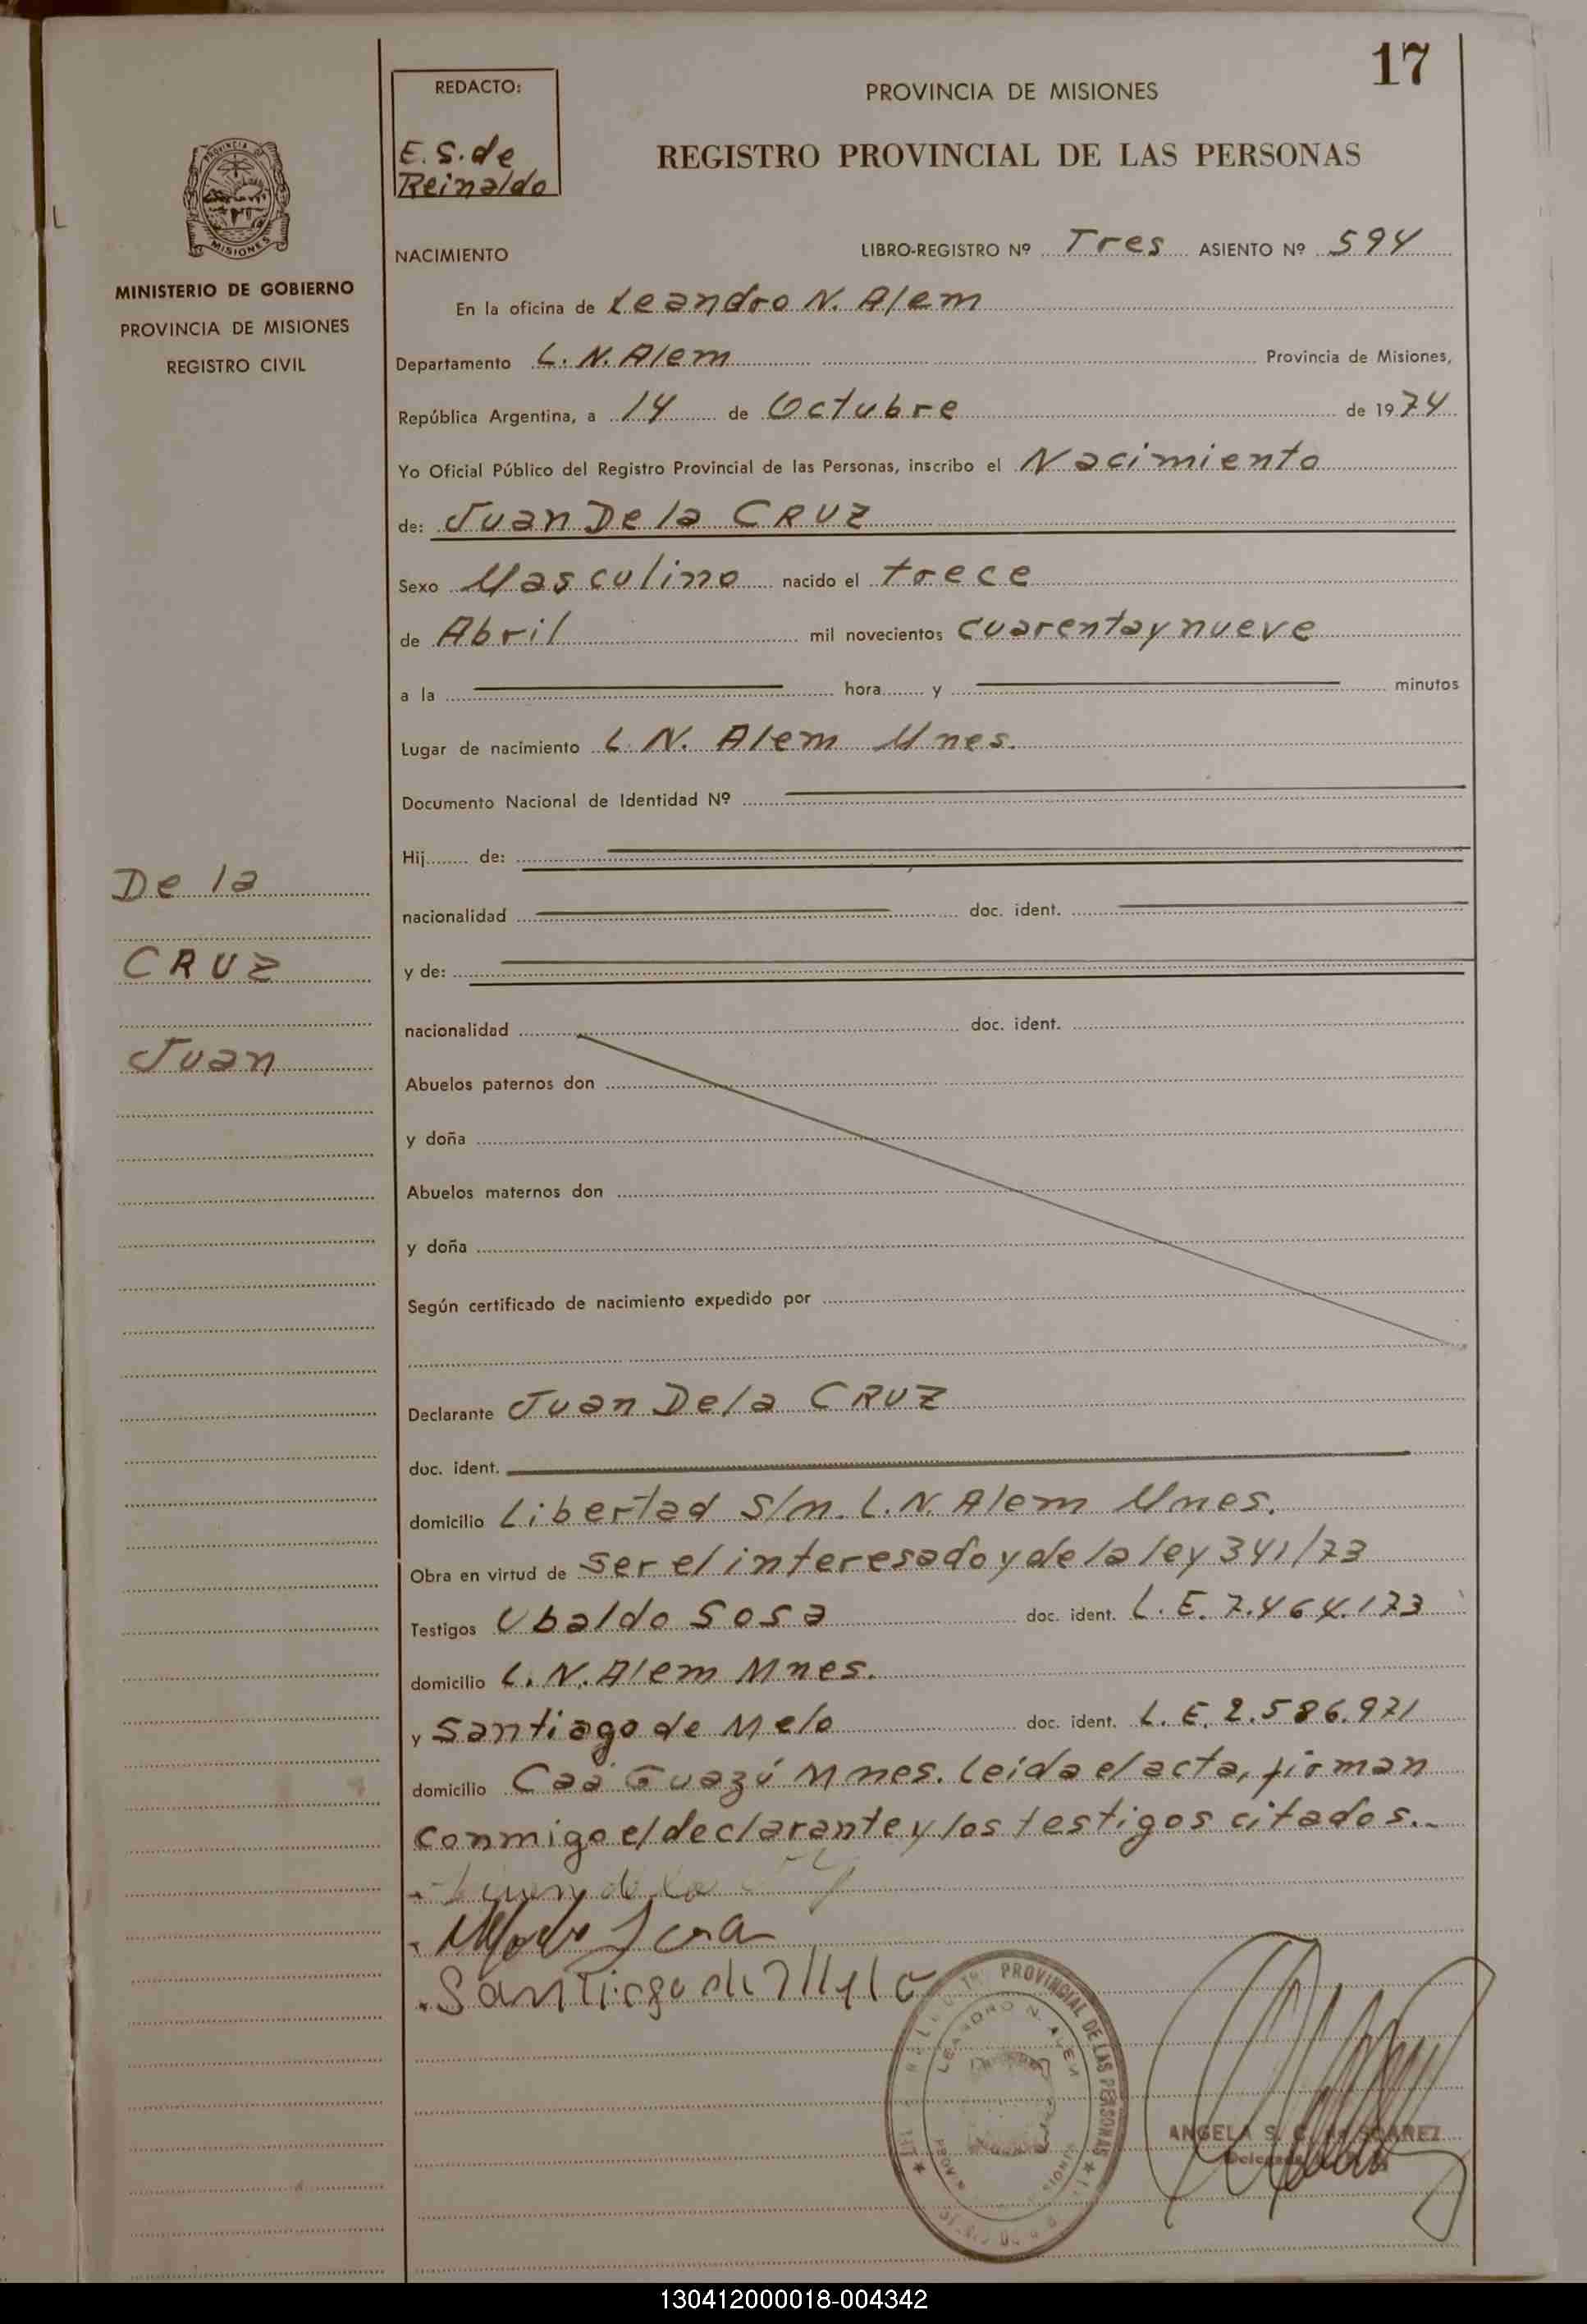 17
REDACTO:
E. S. de
Reinaldo
PROVINCIA DE MISIONES
REGISTRO PROVINCIAL DE LAS PERSONAS
PROVINCIA DE
MISIONES
MINISTERIO DE GOBIERNO
PROVINCIA DE MISIONES
REGISTRO CIVIL
NACIMIENTO LIBRO-REGISTRO Nº Tres ASIENTO Nº 594
En la oficina de Leandro N. Alem
Departamento L. N. Alem Provincia de Misiones,
República Argentina, a 14 de Octubre de 1974
Yo Oficial Público del Registro Provincial de las Personas, inscribo el Nacimiento
de: Juan De la CRUZ
Sexo Masculino nacido el trece
de Abril mil novecientos cuarenta y nueve
a la hora y minutos
Lugar de nacimiento L. N. Alem Mnes.
Documento Nacional de Identidad Nº
Hij de:
nacionalidad doc. ident.
y de:
nacionalidad doc. ident.
Abuelos paternos don
y doña
Abuelos maternos don
y doña
Según certificado de nacimiento expedido por
De la
CRUZ
Juan
Declarante Juan De la CRUZ
doc. ident.
domicilio Libertad S/n. L. N. Alem Mnes.
Obra en virtud de ser el interesado y de la ley 341/73
Testigos Ubaldo Sosa doc. ident. L. E. 7.464.173
domicilio L. N. Alem Mnes.
y Santiago de Melo doc. ident. L. E. 2.586.971
domicilio Caá Guazú Mnes. leida el acta, firman
conmigo el declarante y los testigos citados.-
Juan de la
Sosa
Santiago de Melo
PROVINCIAL DE LAS PERSONAS
LEANDRO N. ALEM
ANGELA S. C. de SUAREZ
130412000018-004342